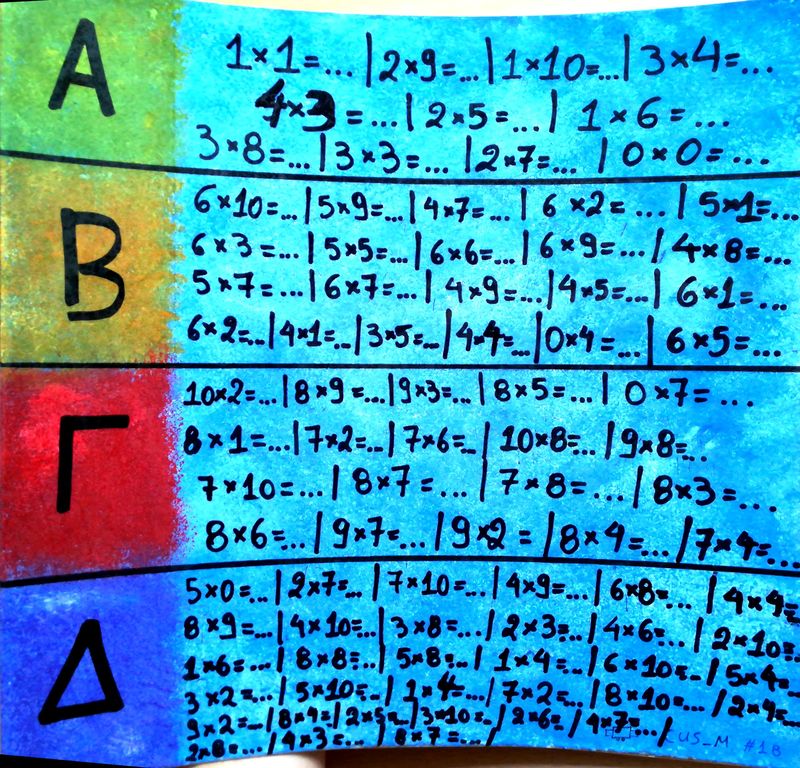 Α
1×1=...|2×9=...|1×10=...|3×4=...
4×3=...|2×5=...|1×6=...
3×8=...|3×3=...|2×7=...|0×0=...
Β
6×10=...|5×9=...|4×7=...|6×2=...|5×1=...
6×3=...|5×5=...|6×6=...|6×9=...|4×8=...
5×7=...|6×7=...|4×9=...|4×5=...|6×1=...
6×2=...|4×1=...|3×5=...|4×4=...|0×4=...|6×5=...
Γ
10×2=...|8×9=...|9×3=...|8×5=...|0×7=...
8×1=...|7×2=...|7×6=...|10×8=...|9×8=...
7×10=...|8×7=...|7×8=...|8×3=...
8×6=...|9×7=...|9×2=|8×4=...|7×4=...
Δ
5×0=...|2×7=...|7×10=...|4×9=...|6×8=...|4×4=...
8×9=...|4×10=...|3×8=...|2×3=...|4×6=...|2×10=...
1×6=...|8×8=...|5×8=...|1×4=...|6×10=...|5×4=...
3×2=...|5×10=...|1×4=...|7×2=...|8×10=...|2×4=...
9×2=...|8×4=...|2×5=...|3×10=...|2×6=...|4×7=...|
2×8=...|4×3=...|8×7=...|
US_M #18